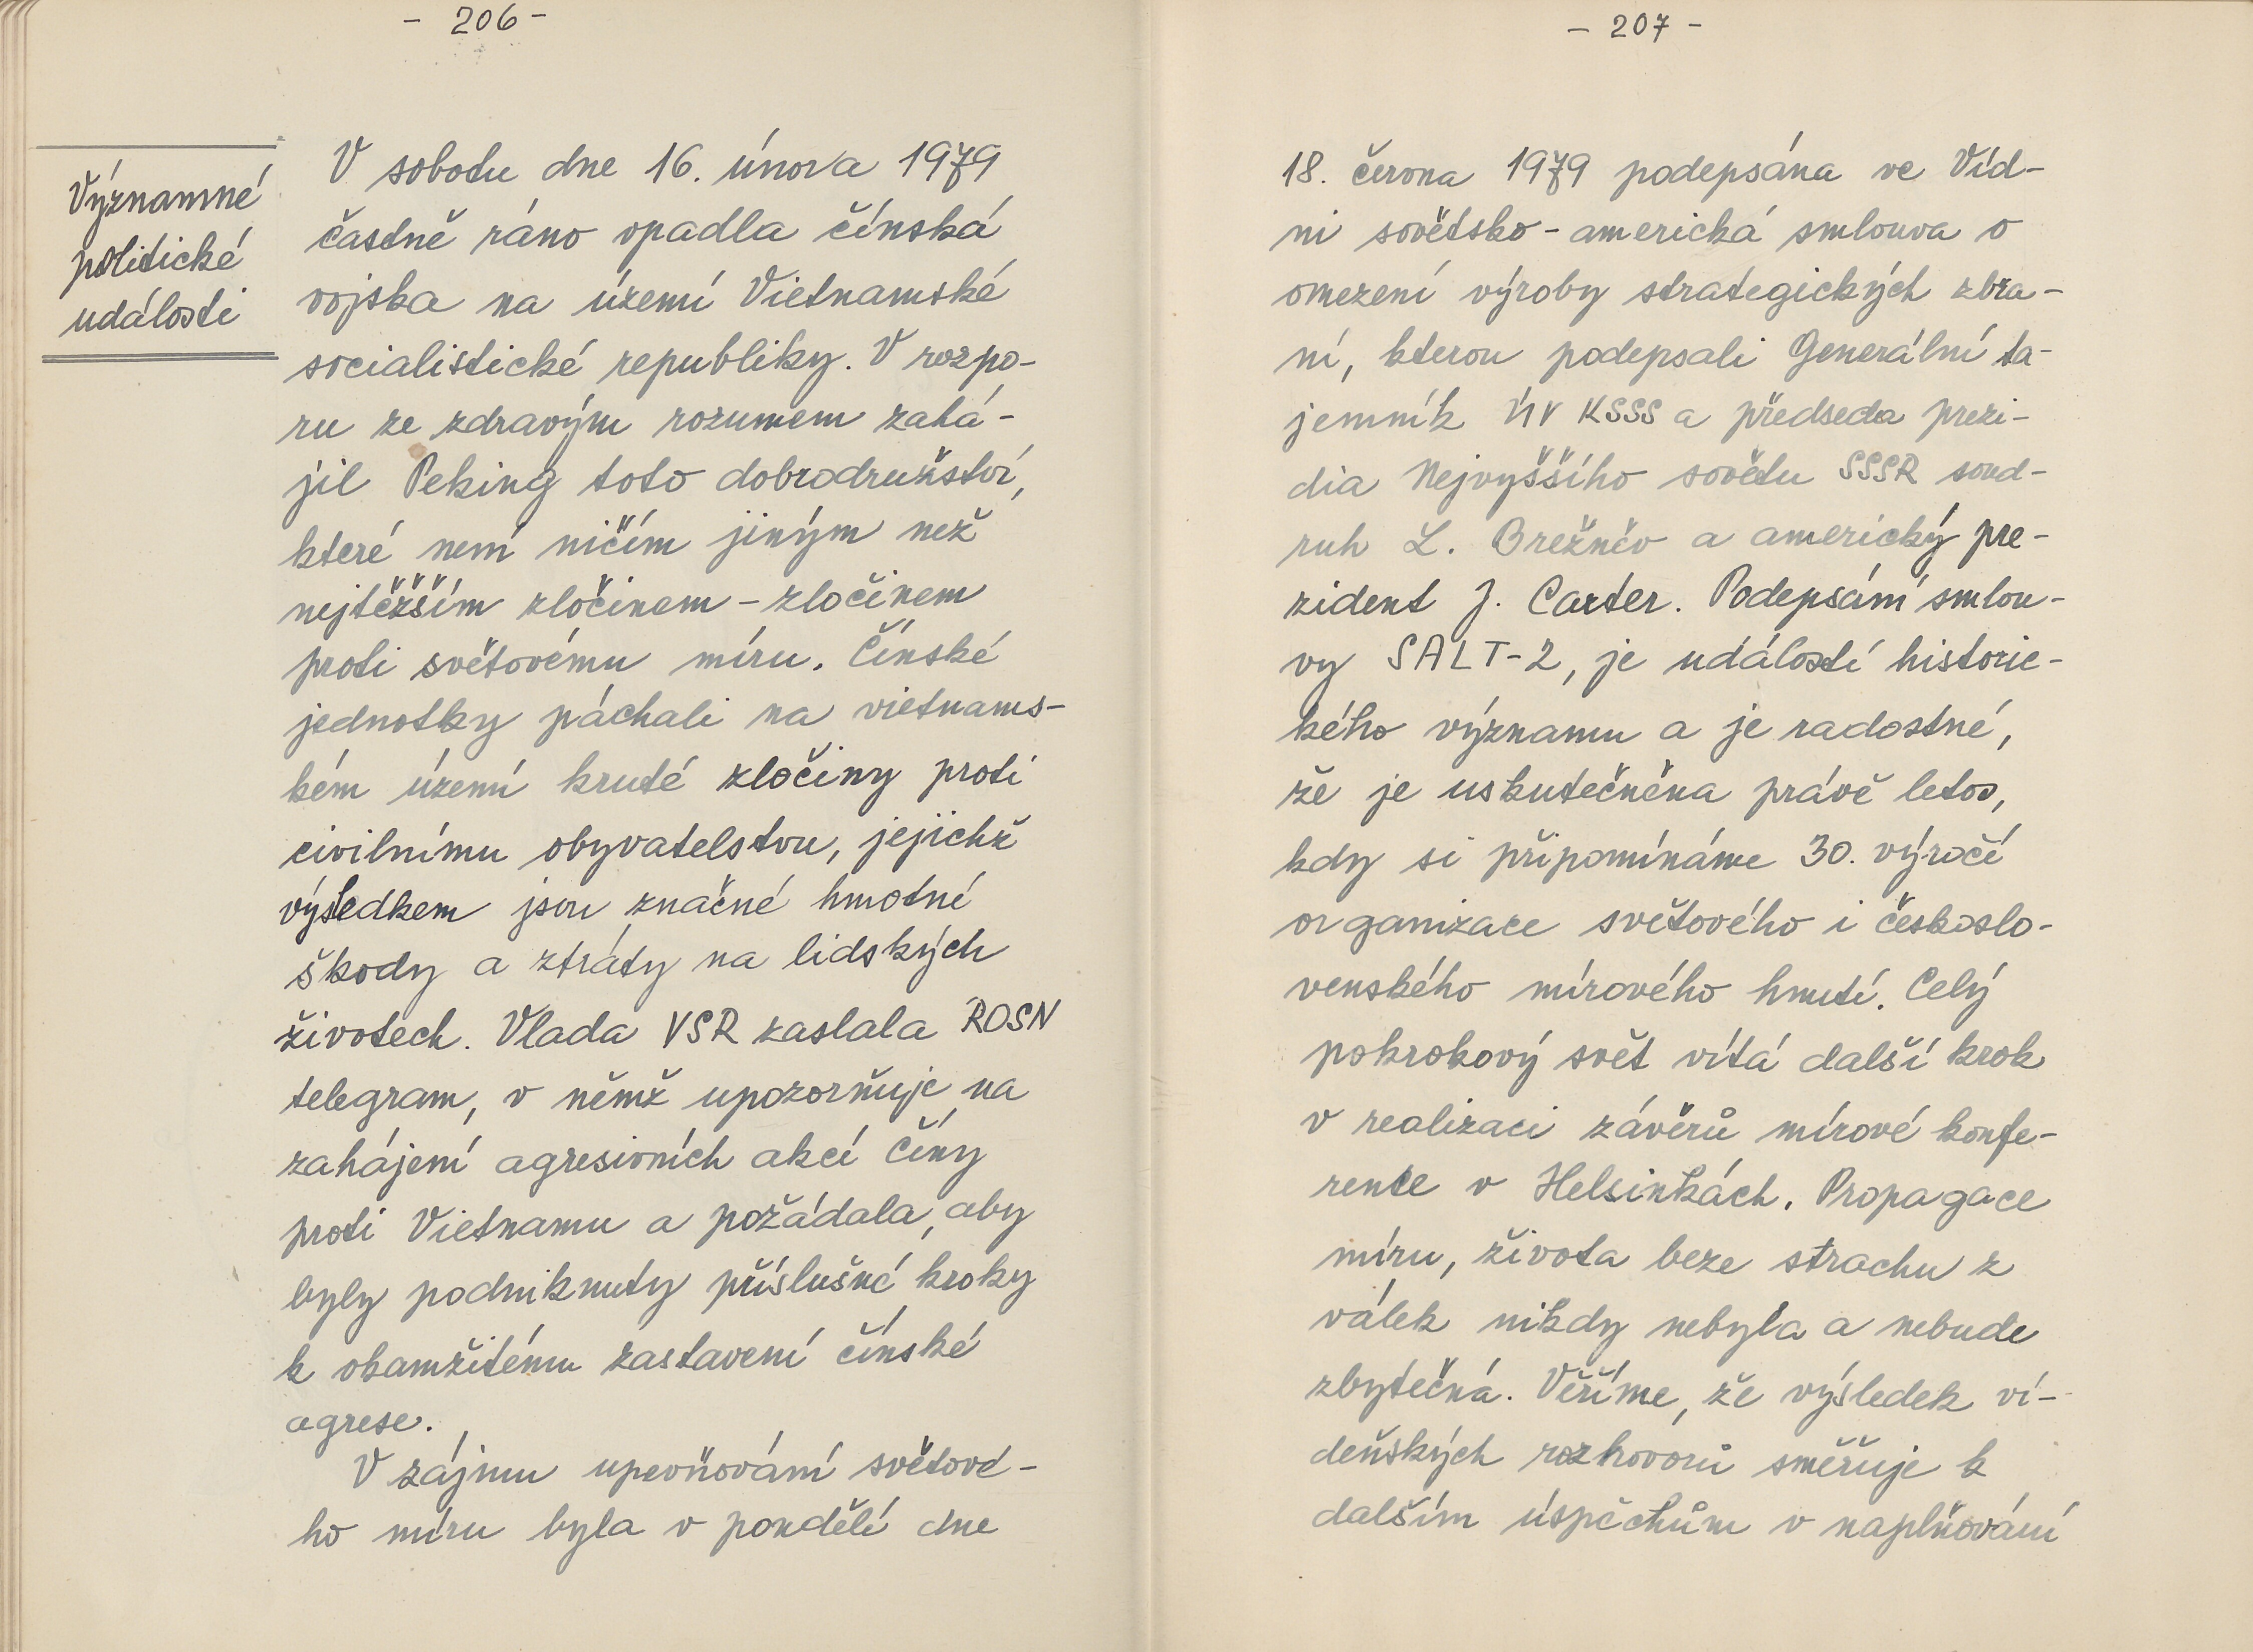 - 206 -
Významné
politické
události
V sobotu dne 16. února 1979
častně ráno opadla čínská
vojska na území Vietnamské
socialistické republiky. V rozpo-
ru ze zdravým rozumem zahá-
jil Peking toto dobrodružství,
které není ničím jiným než
nejtěžším zločinem - zločinem
proti světovému míru. Čínské
jednotky páchali na vietnams-
kém území kruté zločiny proti
civilnímu obyvatelstvu, jejichž
výsledkem jsou značné hmotné
škody a ztráty na lidských
životech. Vlada VSR zaslala ROSN
telegram, v němž upozorňuje na
zahájení agresivních akcí Číny
proti Vietnamu a požádala, aby
byly podniknuty příslušné kroky
k okamžitému zastavení čínské
agrese.
V zájmu upevňování světové-
ho míru byla v pondělí dne
- 207 -
18. června 1979 podepsána ve Víd-
ni sovětsko - americká smlouva o
omezení výroby strategických zbra-
ní, kterou podepsali Generální ta-
jemník ÚV KSSS a předseda prezi-
dia Nejvyššího sovětu SSSR soud-
ruh L. Brežněv a americký pre-
zident J. Carter. Podepsání smlou-
vy SALT-2, je událostí historic-
kého významu a je radostné,
že je uskutečněna právě letos,
kdy si připomínáme 30. výročí
organizace světového i českoslo-
venského mírového hnutí. Celý
pokrokový svět vítá další krok
v realizaci závěrů mírové konfe-
rence v Helsinkách. Propagace
míru, života beze strachu z
válek nikdy nebyla a nebude
zbytečná. Věříme, že výsledek ví-
deňských rozhovorů směřuje k
dalším úspěchům v naplňování